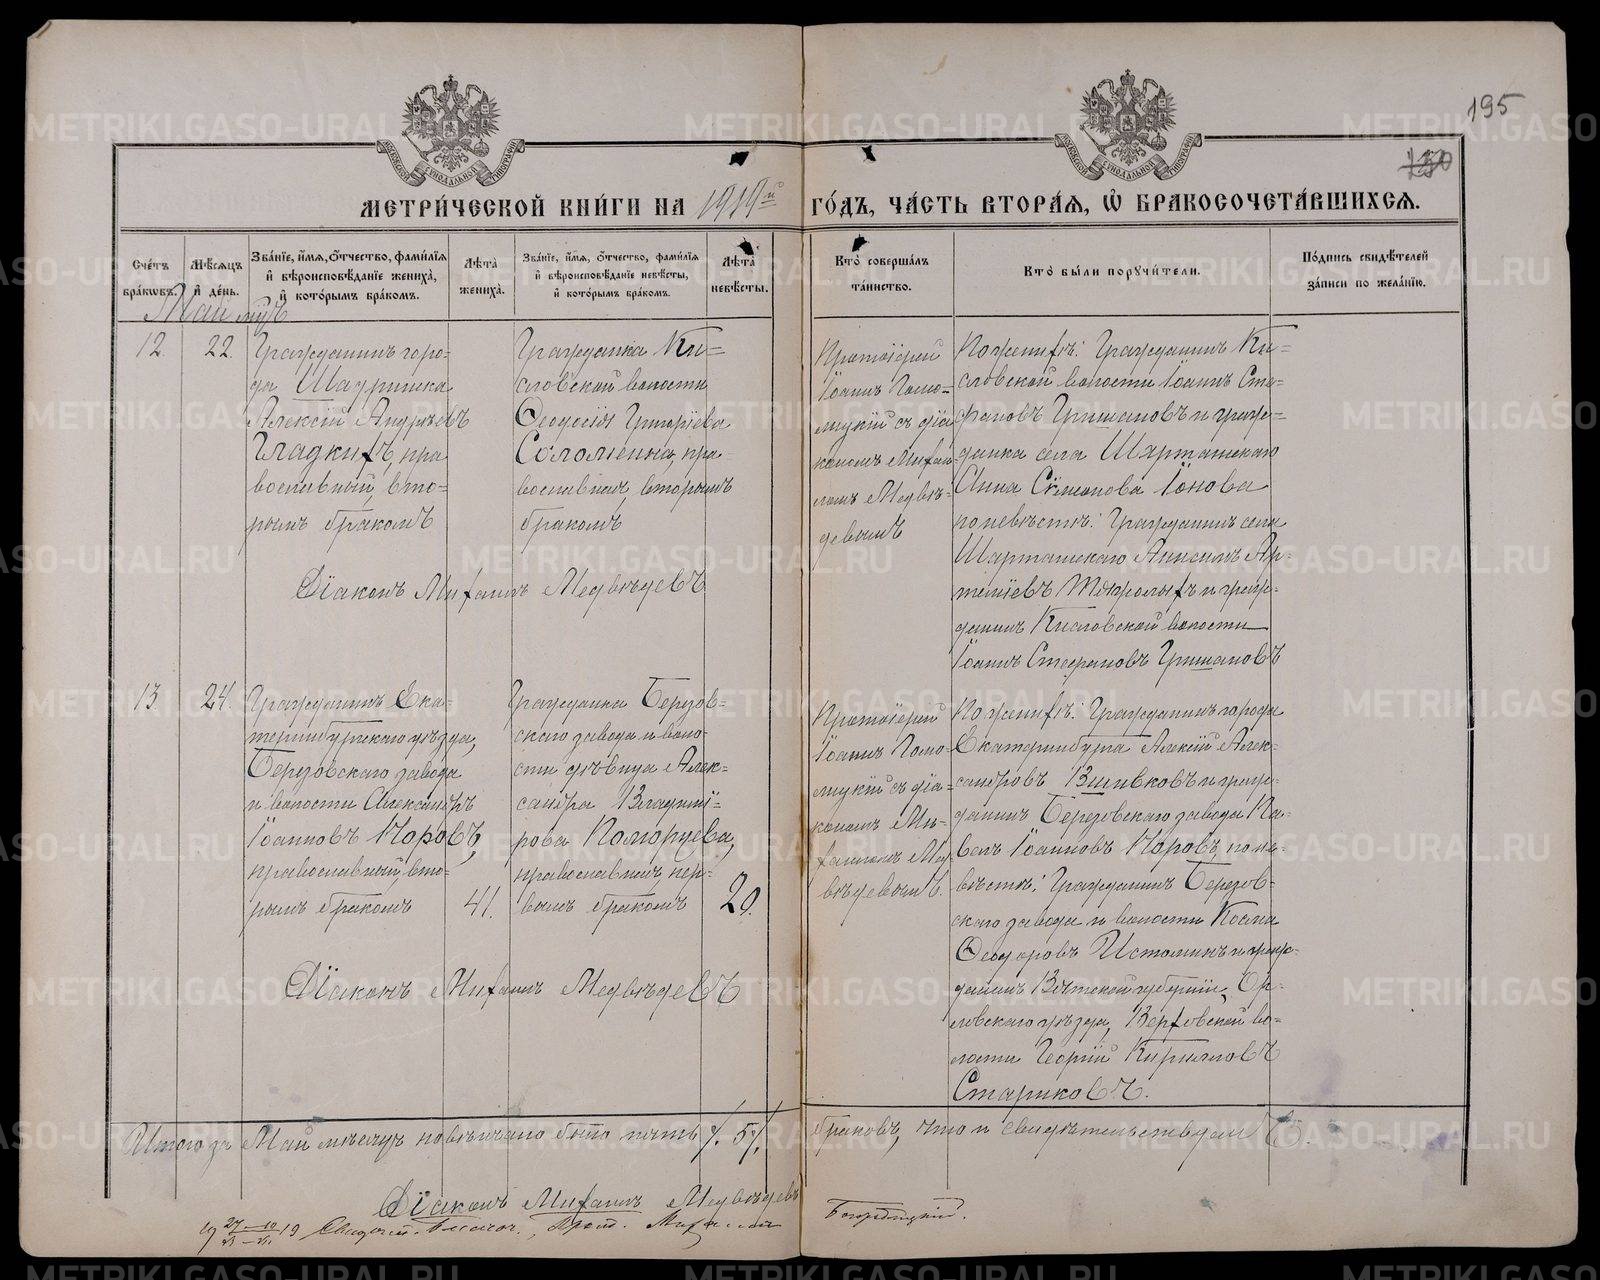 195
130
МЕТРИ́ЧЕСКОЙ КНИ́ГИ НА 1919й ГО́ДЪ, ЧА́СТЬ ВТОРА́Я, Ѡ҆ БРАКОСОЧЕТА́ВШИХСЯ.
Сче́тъ бра́кѡвъ.
Мѣ́сяцъ и҆ де́нь.
Зва́нїе, и҆́мя, ѻ҆́тчество, фами́лїя и҆ вѣроисповѣ́данїе жениха̀, и҆ кото́рымъ бра́комъ.
Лѣ́та жениха̀.
Зва́нїе, и҆́мя, ѻ҆́тчество, фами́лїя и҆ вѣроисповѣ́данїе невѣ́сты, и҆ кото́рымъ бра́комъ.
Лѣ́та невѣ́сты.
Кто̀ соверша́лъ та́инство.
Кто̀ бы́ли порꙋчи́тели.
По́дпись свидѣ́телей за́писи по жела́нїю.
Май мцъ
12.
22.
Гражданинъ горо=
да Шадринска
Алексій Андреевъ
Гладкихъ, пра
вославный, вто=
рымъ бракомъ
Гражданка Ки=
словской волости
Ѳеодосія Григоріева
Соломеина, пра-
вославная, вторымъ
бракомъ
Протоіерей
Іоаннъ Голо=
мудкій съ діа
кономъ Михаи
ломъ Медвѣ=
девымъ
По женихѣ: Гражданинъ Ки=
словской волости Іоаннъ Сте=
фановъ Гришановъ и граж=
данка села Шарташскаго
Анна Сѵмеонова Іонова
по невѣстѣ: Гражданинъ села
Шарташскаго Анисимъ Ар=
теміевъ и граж=
данинъ Кисловской волости
Іоаннъ Стефановъ Гришановъ
Діаконъ Михаилъ Медвѣдевъ
13.
24.
Гражданинъ Ека=
теринбургскаго уѣзда,
Березовскаго завода
и волости Александръ
Іоанновъ Норовъ,
православный, вто=
рымъ бракомъ
41.
Гражданка Березов=
скаго завода и воло=
сти дѣвица Алек=
сандра Владимі=
рова Поморцева,
православная, пер=
вымъ бракомъ
29.
Протоіерей
Іоаннъ Голо=
мудкій съ діа=
кономъ Ми=
хаиломъ Мед
вѣдевымъ.
По женихѣ: Гражданинъ города
Екатеринбурга Алексій Алек=
сандровъ Вшивковъ и граж=
данинъ Березовскаго завода Па=
велъ Іоанновъ Норовъ, по не=
вѣстѣ: Гражданинъ Березов=
скаго завода и волости Косма
Ѳеодоровъ Истоминъ и граж=
данинъ Вятской губерніи, Ор=
ловскаго уѣзда, Верховской во=
лости Георгій Кирилловъ
Стариковъ.
Діаконъ Михаилъ Медвѣдевъ
Итого за Май мѣсяцъ повѣнчано было пять /. 5./. браковъ, что и свидѣтельствуемъ
Діаконъ Михаилъ Медвѣдевъ
Богородицкій.
METRIKI.GASO-URAL.RU